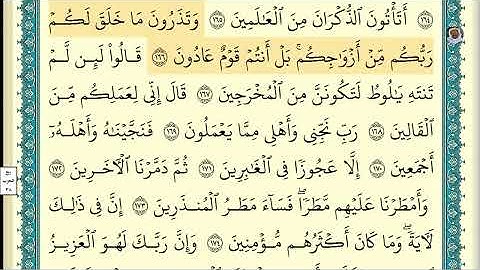 ١٦٤ أَتَأْتُونَ ٱلذُّكْرَانَ مِنَ ٱلْعَٰلَمِينَ ١٦٥ وَتَذَرُونَ مَا خَلَقَ لَكُمْ
رَبُّكُم مِّنْ أَزْوَٰجِكُم ۚ بَلْ أَنتُمْ قَوْمٌ عَادُونَ ١٦٦ قَالُوا۟ لَئِن لَّمْ
تَنتَهِ يَٰلُوطُ لَتَكُونَنَّ مِنَ ٱلْمُخْرَجِينَ ١٦٧ قَالَ إِنِّى لِعَمَلِكُم مِّنَ
ٱلْقَالِينَ ١٦٨ رَبِّ نَجِّنِى وَأَهْلِى مِمَّا يَعْمَلُونَ ١٦٩ فَنَجَّيْنَٰهُ وَأَهْلَهُۥٓ
أَجْمَعِينَ ١٧٠ إِلَّا عَجُوزًا فِى ٱلْغَٰبِرِينَ ١٧١ ثُمَّ دَمَّرْنَا ٱلْءَاخَرِينَ ١٧٢
وَأَمْطَرْنَا عَلَيْهِم مَّطَرًا ۖ فَسَآءَ مَطَرُ ٱلْمُنذَرِينَ ١٧٣ إِنَّ فِى ذَٰلِكَ
لَءَايَةً ۖ وَمَا كَانَ أَكْثَرُهُم مُّؤْمِنِينَ ١٧٤ وَإِنَّ رَبَّكَ لَهُوَ ٱلْعَزِيزُ